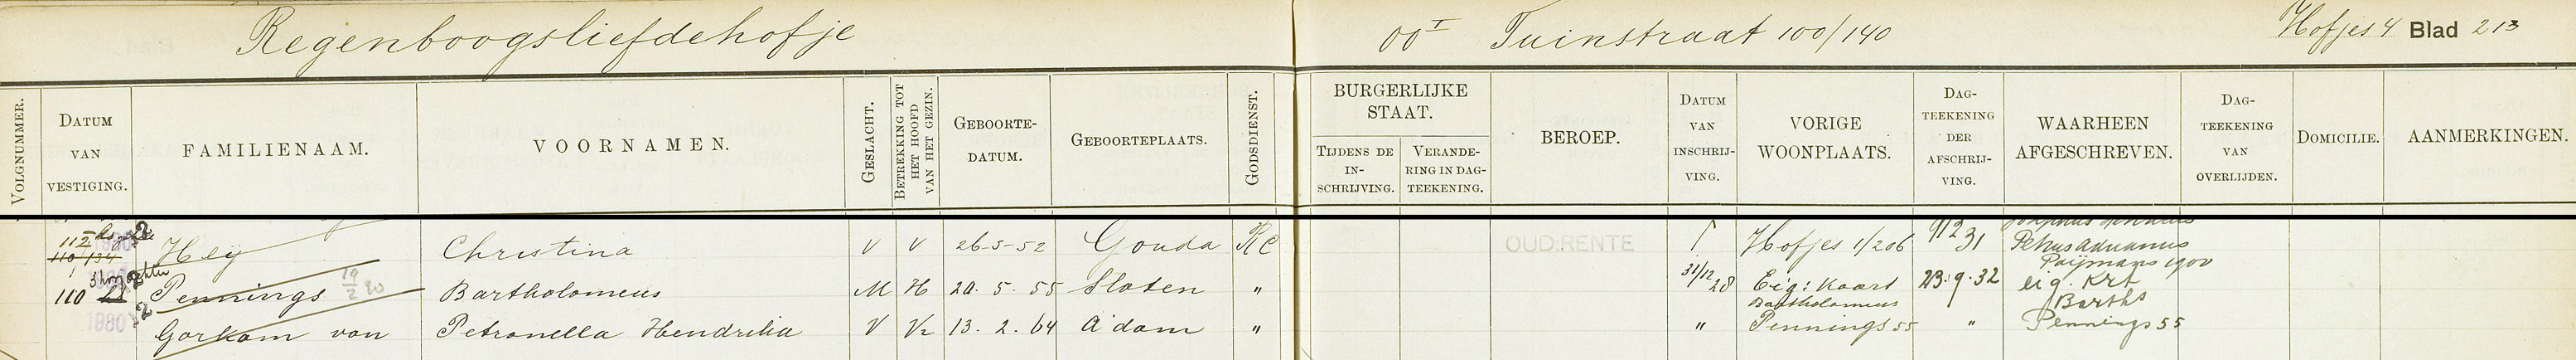 Regenboogsliefdehofje
00 I Tuinstraat 100/140 Hofjes 4 Blad 213
VOLGNUMMER. DATUM VAN VESTIGING. FAMILIENAAM. VOORNAMEN. GESLACHT. BETREKKING TOT HET HOOFD VAN HET GEZIN. GEBOORTE-DATUM. GEBOORTEPLAATS. GODSDIENST. BURGERLIJKE STAAT. TIJDENS DE IN-SCHRIJVING. VERANDE-RING IN DAG-TEEKENING. BEROEP. DATUM VAN INSCHRIJ-VING. VORIGE WOONPLAATS. DAG-TEEKENING DER AFSCHRIJ-VING. WAARHEEN AFGESCHREVEN. DAG-TEEKENING VAN OVERLIJDEN. DOMICILIE. AANMERKINGEN.
112 110/134 Heij Christina V V 26-5-52 Gouda RC OUD:RENTE Hofjes 1/206 9/12 31 Petrus Adrianus Paijmans 1900
110 Pennings 19/2 30 Bartholomeus M H 20. 5. 55 Sloten " 31/12 28 Eig: Kaart 23. 9. 32 eig. Krt
1930 Gorkom van Petronella Hendrika V Vr 13. 2. 64 A'dam " " Bartholomeus Pennings 55 " Barths Pennings 55